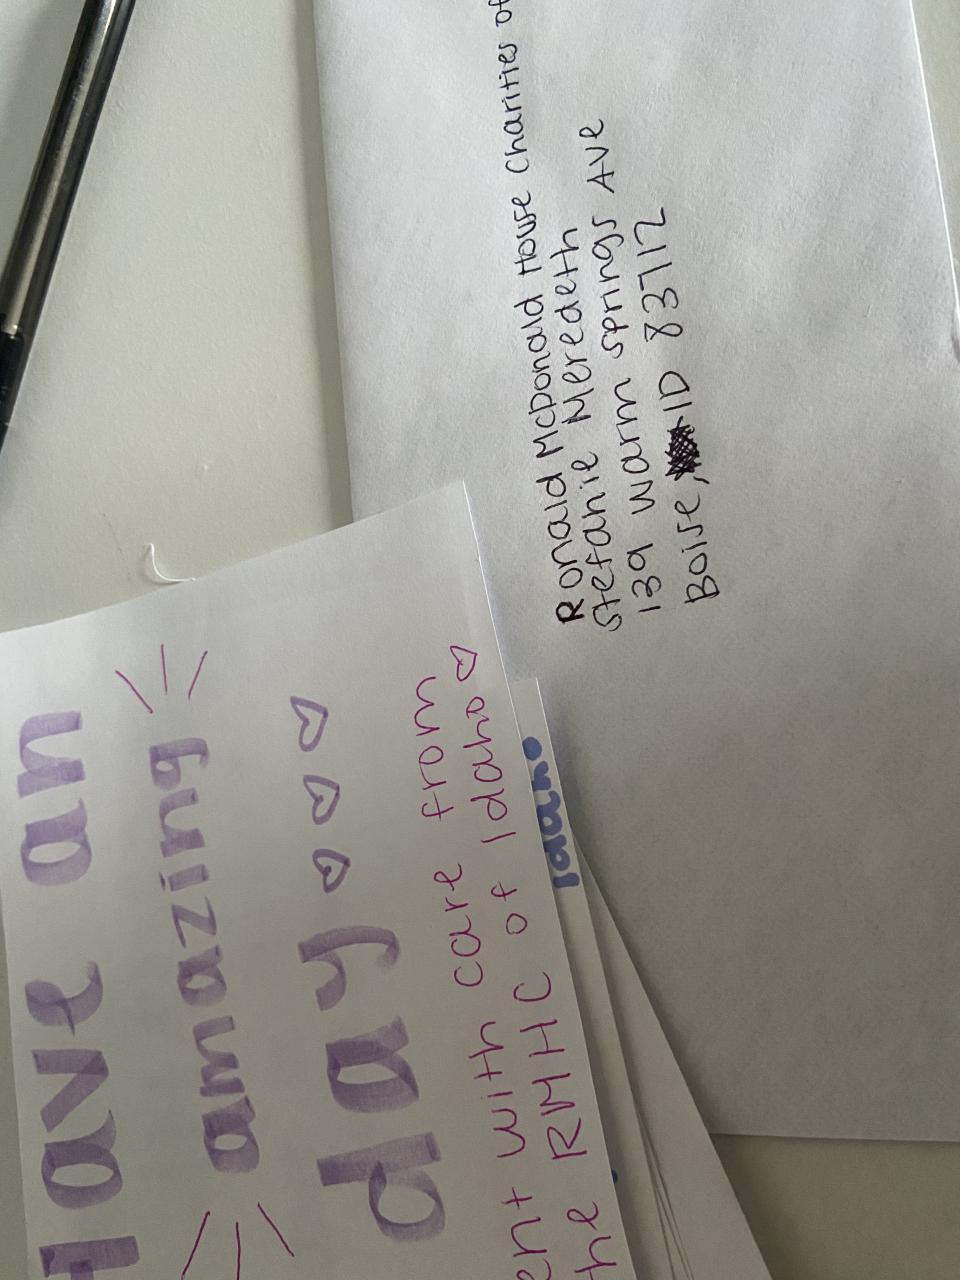 Ronald McDonald House Charities of
Stefanie Meredeth
139 Warm Springs Ave
Boise, ID 83712
Have an
amazing
day
ent with care from
the RMHC of Idaho
Idaho